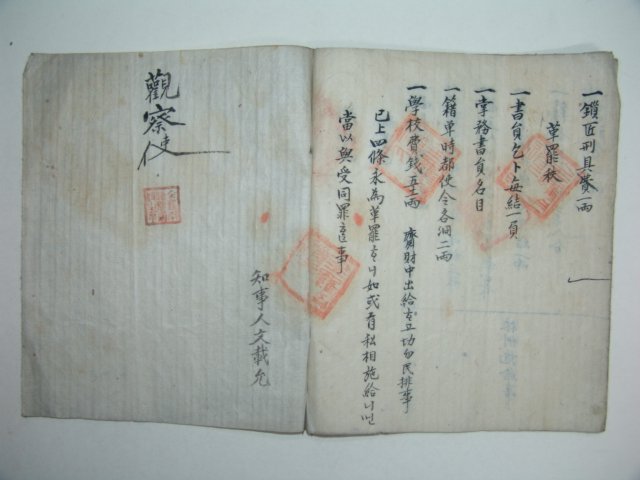 一鎖匠刑具費一兩
革罷秩
一書員乞卜每結一負
一掌務書員名目
一籍單時都使令各洞二兩
一學校費錢五十兩 齋財中出給立 切勿民排事
已上四條永為革罷 如或有私相施給
當以與受同罪事
觀察使
知事人文載允